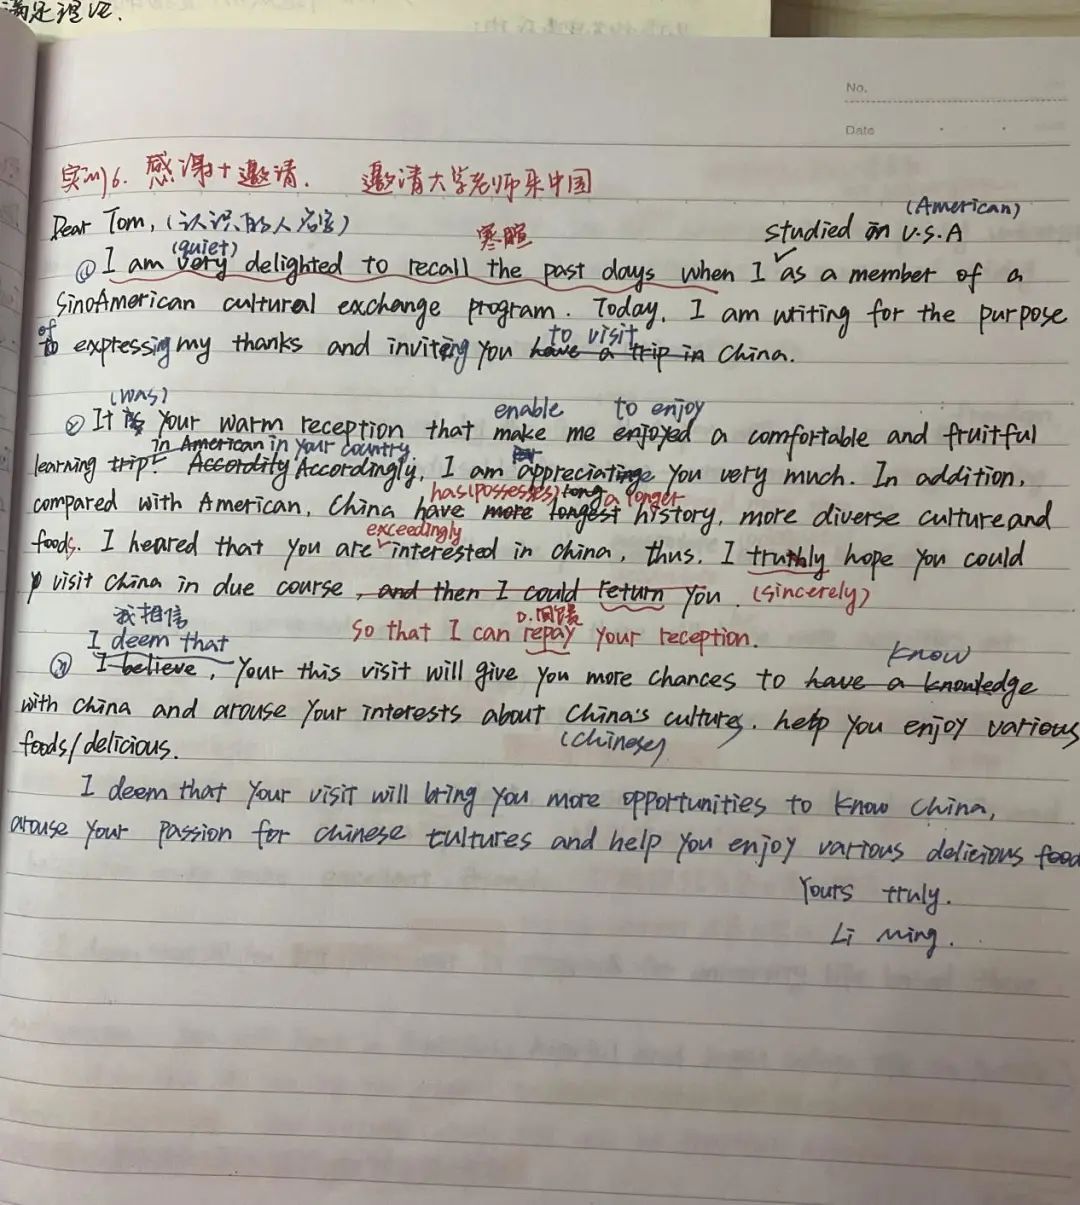 满足理论.
No.
Date
实训6. 感谢+邀请. 邀请大学老师来中国
(American)
Dear Tom, (认识的人名字) 寒暄 studied in U.S.A
(quiet)
① I am very delighted to recall the past days when I as a member of a
SinoAmerican cultural exchange program. Today, I am writing for the purpose
of to visit
to expressing my thanks and inviting you have a trip in China.
(was) enable to enjoy
② It is your warm reception that make me enjoyed a comfortable and fruitful
in American in your country.
learning trip. Accordity Accordingly, I am appreciatinge you very much. In addition,
has(possesses) long a longer
compared with American, China have more longest history, more diverse culture and
exceedingly
foods. I heared that you are interested in china, thus, I truthly hope you could
visit China in due course, and then I could return you. (sincerely)
我相信 D.回馈
I deem that so that I can repay your reception.
know
③ I believe, your this visit will give you more chances to have a knowledge
with china and arouse your interests about China's cultures. help you enjoy various
(Chinese)
foods/delicious.
I deem that your visit will bring you more opportunities to know China,
arouse your passion for chinese cultures and help you enjoy various delicious food
Yours truly.
Li Ming.